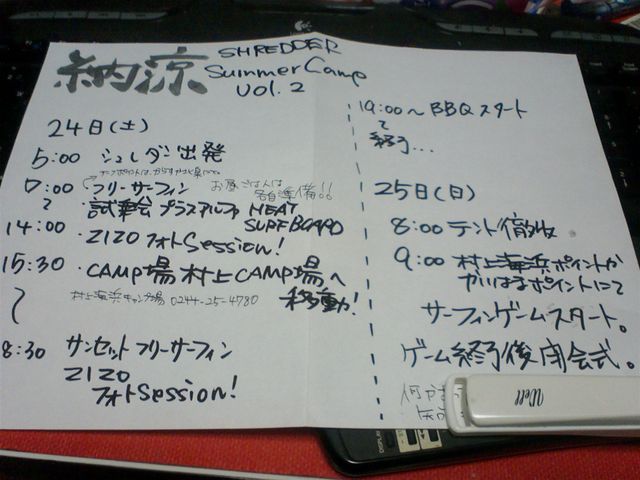 納涼 SHREDDER
Summer Camp
Vol.2
24日(土)
5:00 シュレダー出発
7:00 フリーサーフィン お昼ごはんは
各自準備!!
・試乗会 プラスアルファ HEAT
SURFBOARD
14:00
・ZIZO フォトSession!
15:30 ・CAMP場 村上CAMP場へ
村上海浜キャンプ場 0244-25-4780 移動!
8:30 サンセットフリーサーフィン
ZIZO
フォトSession!
19:00〜BBQスタート
終了...
25日(日)
8:00 テント撤収
9:00 村上海浜ポイントか
かいはまポイントにて
サーフィンゲームスタート。
ゲーム終了後閉会式。
Well